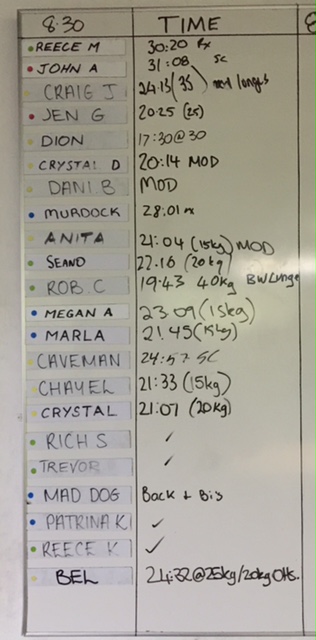 8:30 TIME
REECE M 30:20 Rx
JOHN A 31:08 SC
CRAIG J 24:13 (35)
JEN G 20:25 (25)
DION 17:30@30
CRYSTAL D 20:14 MOD
DANI B MOD
MURDOCK 28:01 rx
ANITA 21:04 (15kg) MOD
SEANO 22:16 (20kg)
ROB C 19:43 40kg BW Lunge
MEGAN A 23:09 (15kg)
MARLA 21:45 (15kg)
CAVEMAN 24:57 SC
CHAYEL 21:33 (15kg)
CRYSTAL 21:07 (20kg)
RICH S ✓
TREVOR ✓
MAD DOG Back + Bis
PATRINA K ✓
REECE K ✓
BEL 24:32@25kg/20kg OHs.